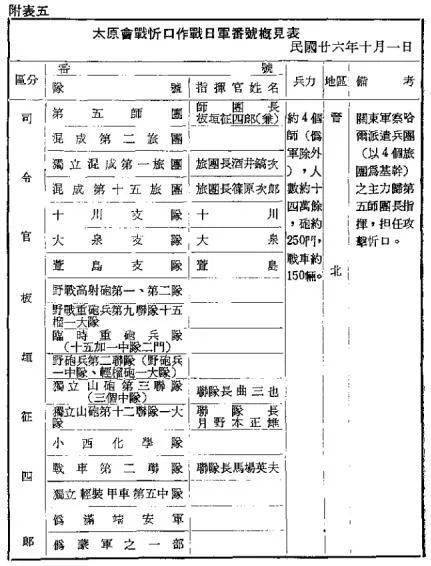 附表五
太原會戰忻口作戰日軍番號概見表
民國廿六年十月一日
區分 番號 兵力 地區 備考
隊號 指揮官姓名
司令官板垣征四郎
第五師團 師團長板垣征四郎(兼)
混成第二旅團
獨立混成第一旅團 旅團長酒井鎬次
混成第十五旅團 旅團長篠原次郎
十川支隊 十川
大泉支隊 大泉
萱島支隊 萱島
野戰高射砲第一、第二隊
野戰重砲兵第九聯隊十五榴一大隊
臨時重砲兵隊
(十五加一中隊二門)
野砲兵第二聯隊(野砲兵一中隊、輕榴砲一大隊)
獨立山砲第三聯隊 聯隊長曲三也
(三個中隊)
獨立山砲第十二聯隊一大隊 聯隊長月野木正雄
小西化學隊
戰車第二聯隊 聯隊長馬場英夫
獨立輕裝甲車第五中隊
僞滿靖安軍
僞蒙軍之一部
約4個師(僞軍除外),人數約十四萬餘,砲約250門,戰車約150輛。
晋北
關東軍察哈爾派遣兵團(以4個旅團爲基幹)之主力歸第五師團長指揮,担任攻擊忻口。